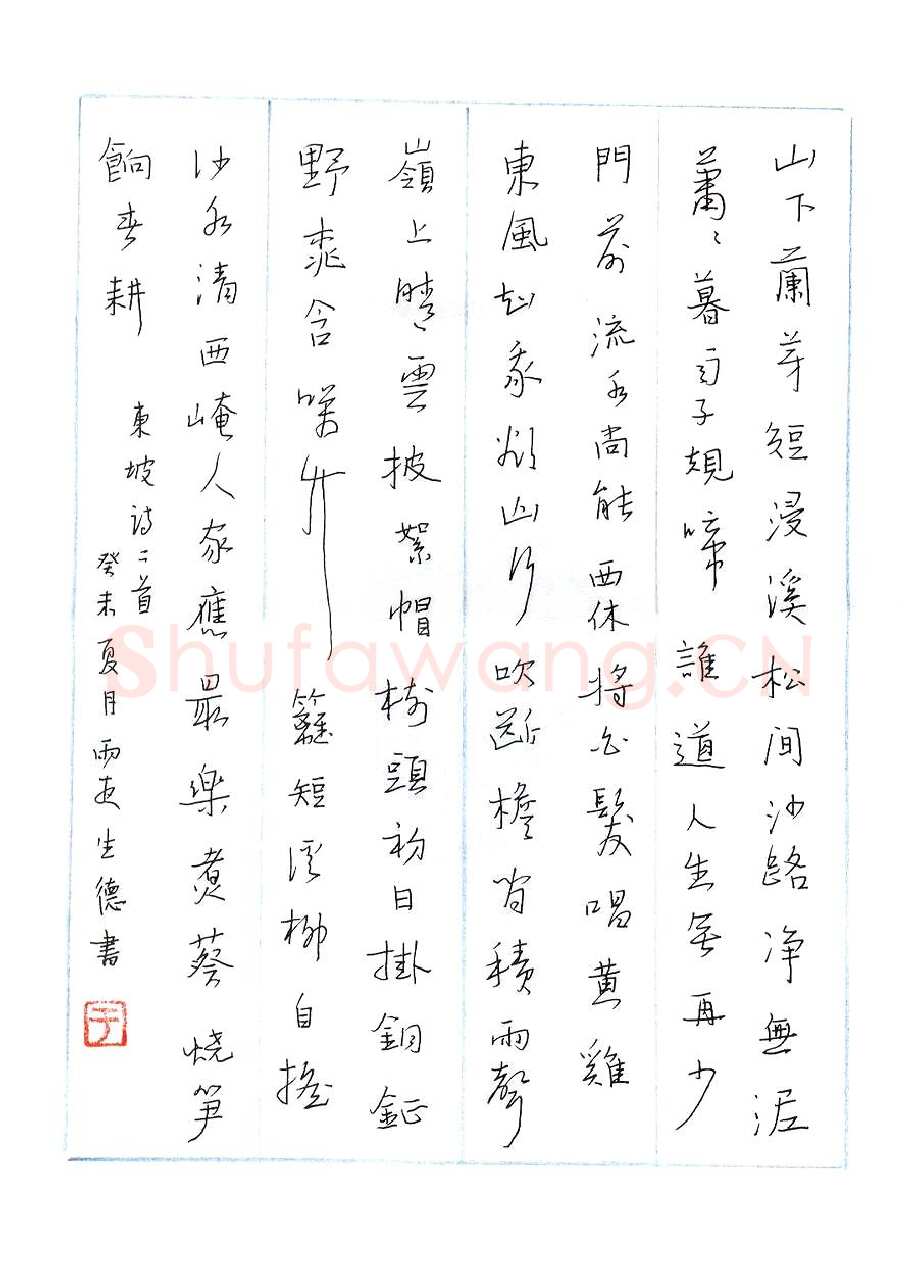 山下蘭芽短浸溪松间沙路净無泥
蕭〻暮雨子規啼誰道人生無再少
門前流水尚能西休將白髮唱黄雞
東風知我欲山行吹斷檐间積雨聲
嶺上晴雲披絮帽樹頭初日掛銅鉦
野桃含笑竹籬短溪柳自摇
沙水清西崦人家應最樂煮葵烧笋
餉春耕
東坡诗二首
癸未夏月雨夜生德書
于
Shufawang.CN